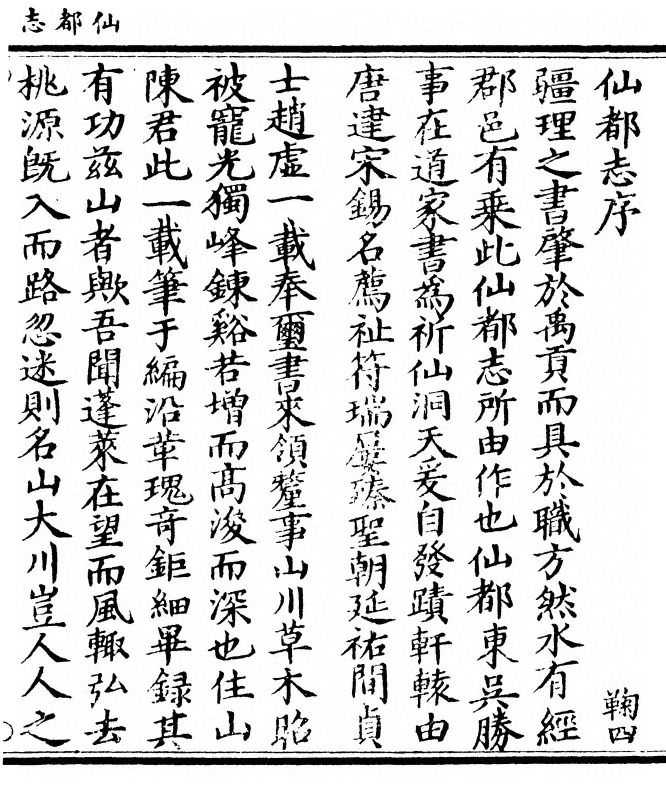 仙都志
仙都志序
鞠四
疆理之書肇於禹貢而具於職方然水有經
郡邑有乘此仙都志所由作也仙都東吳勝
事在道家書為祈仙洞天爰自發蹟軒轅由
唐建宋錫名薦祉符瑞屢臻聖朝延祐間貞
士趙虛一載奉璽書來領釐事山川草木昭
被寵光獨峰鍊谿若增而高浚而深也住山
陳君此一載筆于編沿革瑰奇鉅細畢録其
有功茲山者歟吾聞蓬萊在望而風輙弘去
桃源旣入而路忽迷則名山大川豈人人之